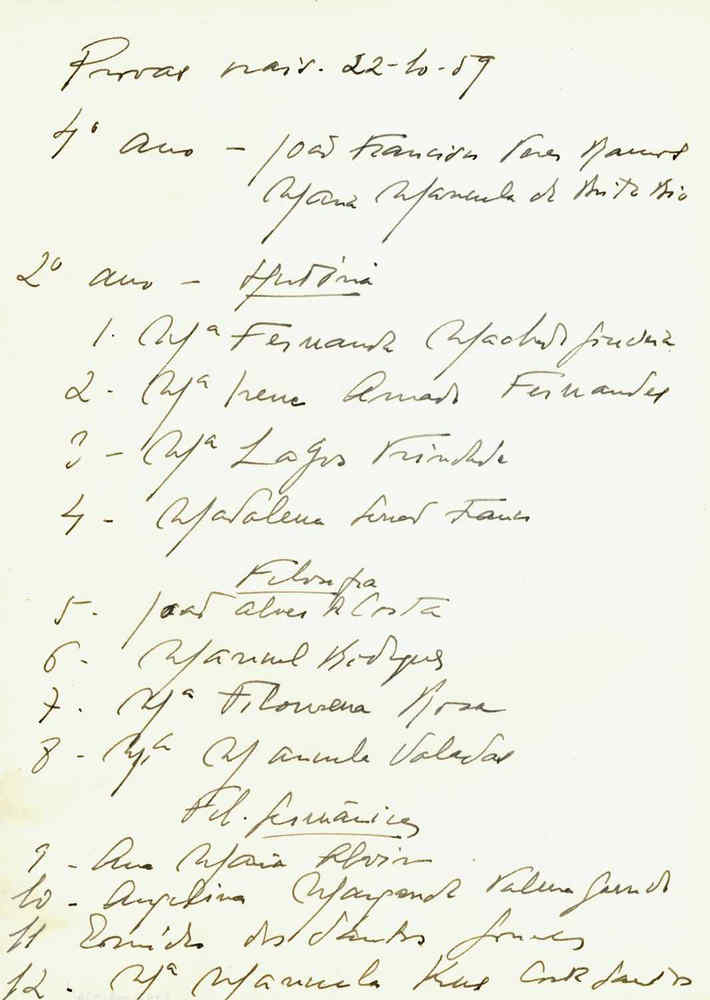 Provas orais. 22-10-59
4º ano - João Francisco Ramos
Maria Manuela de Brito
2º ano - História
1. Mª Fernanda Machado
2. Mª Irene Amado Fernandes
3 - Mª Lagos Trindade
4 - Madalena
Filosofia
5. João Alves da Costa
6. Manuel Rodrigues
7. Mª Filomena Rosa
8 - Mª Manuela Valadas
Fil. Germânicas
9 - Ana Maria
10 - Angelina Margarida
11 dos Santos Gomes
12. Mª Manuela Santos